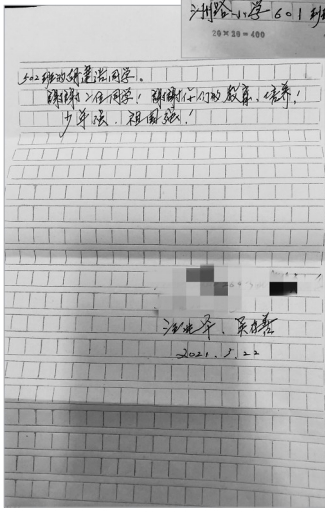 洲路小学601班
20×20=400
502班的        同学。
谢谢二位同学！谢谢你们的教育、培养！
少年强、祖国强！
2021.5.22